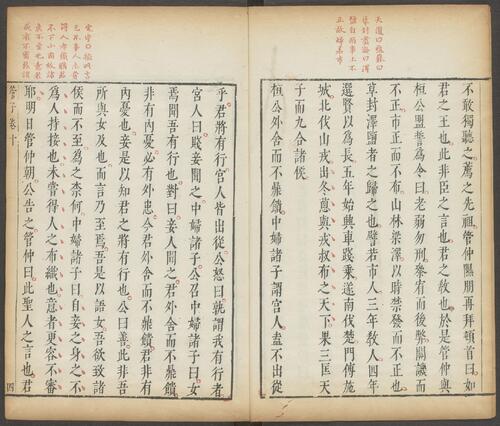 不敢獨聽之薦之先祖管仲隰朋再拜頓首曰如
君之王也此非臣之言也君之敎也於是管仲與
桓公盟誓爲令曰老弱勿刑參宥而後弊關譏而
不正市正而不布山林梁澤以時禁發而不正也
草封澤鹽者之歸之也譬若市人三年敎人四年
選賢以爲長五年始興車踐乘遂南伐楚門傅施
城北伐山戎出冬蔥與戎叔布之天下果三匡天
子而九合諸侯
桓公外舍而不鼎饋中婦諸子謂宮人盍不出從
乎君將有行宮人皆出從公怒曰孰謂我有行者
宮人曰賤妾聞之中婦諸子公召中婦諸子曰女
焉聞吾有行也對曰妾人聞之君外舍而不鼎饋
非有內憂必有外患今君外舍而不鼎饋君非有
內憂也妾是以知君之將有行也公曰善此非吾
所與女及也而言乃至焉吾是以語女吾欲致諸
侯而不至爲之柰何中婦諸子曰自妾之身之不
爲人持接也未嘗得人之布織也意者更容不審
耶明日管仲朝公告之管仲曰此聖人之言也君
管子卷十
四